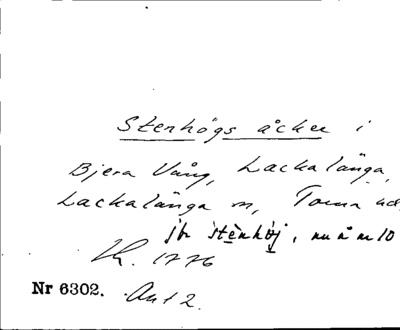 Stenhögs åcker i
Bjera Vång, Lackalänga,
Lackalänga sn, Torna hd,
jb stènhö̀j, nu å n 10
1776
Nr 6302. Ant 2.